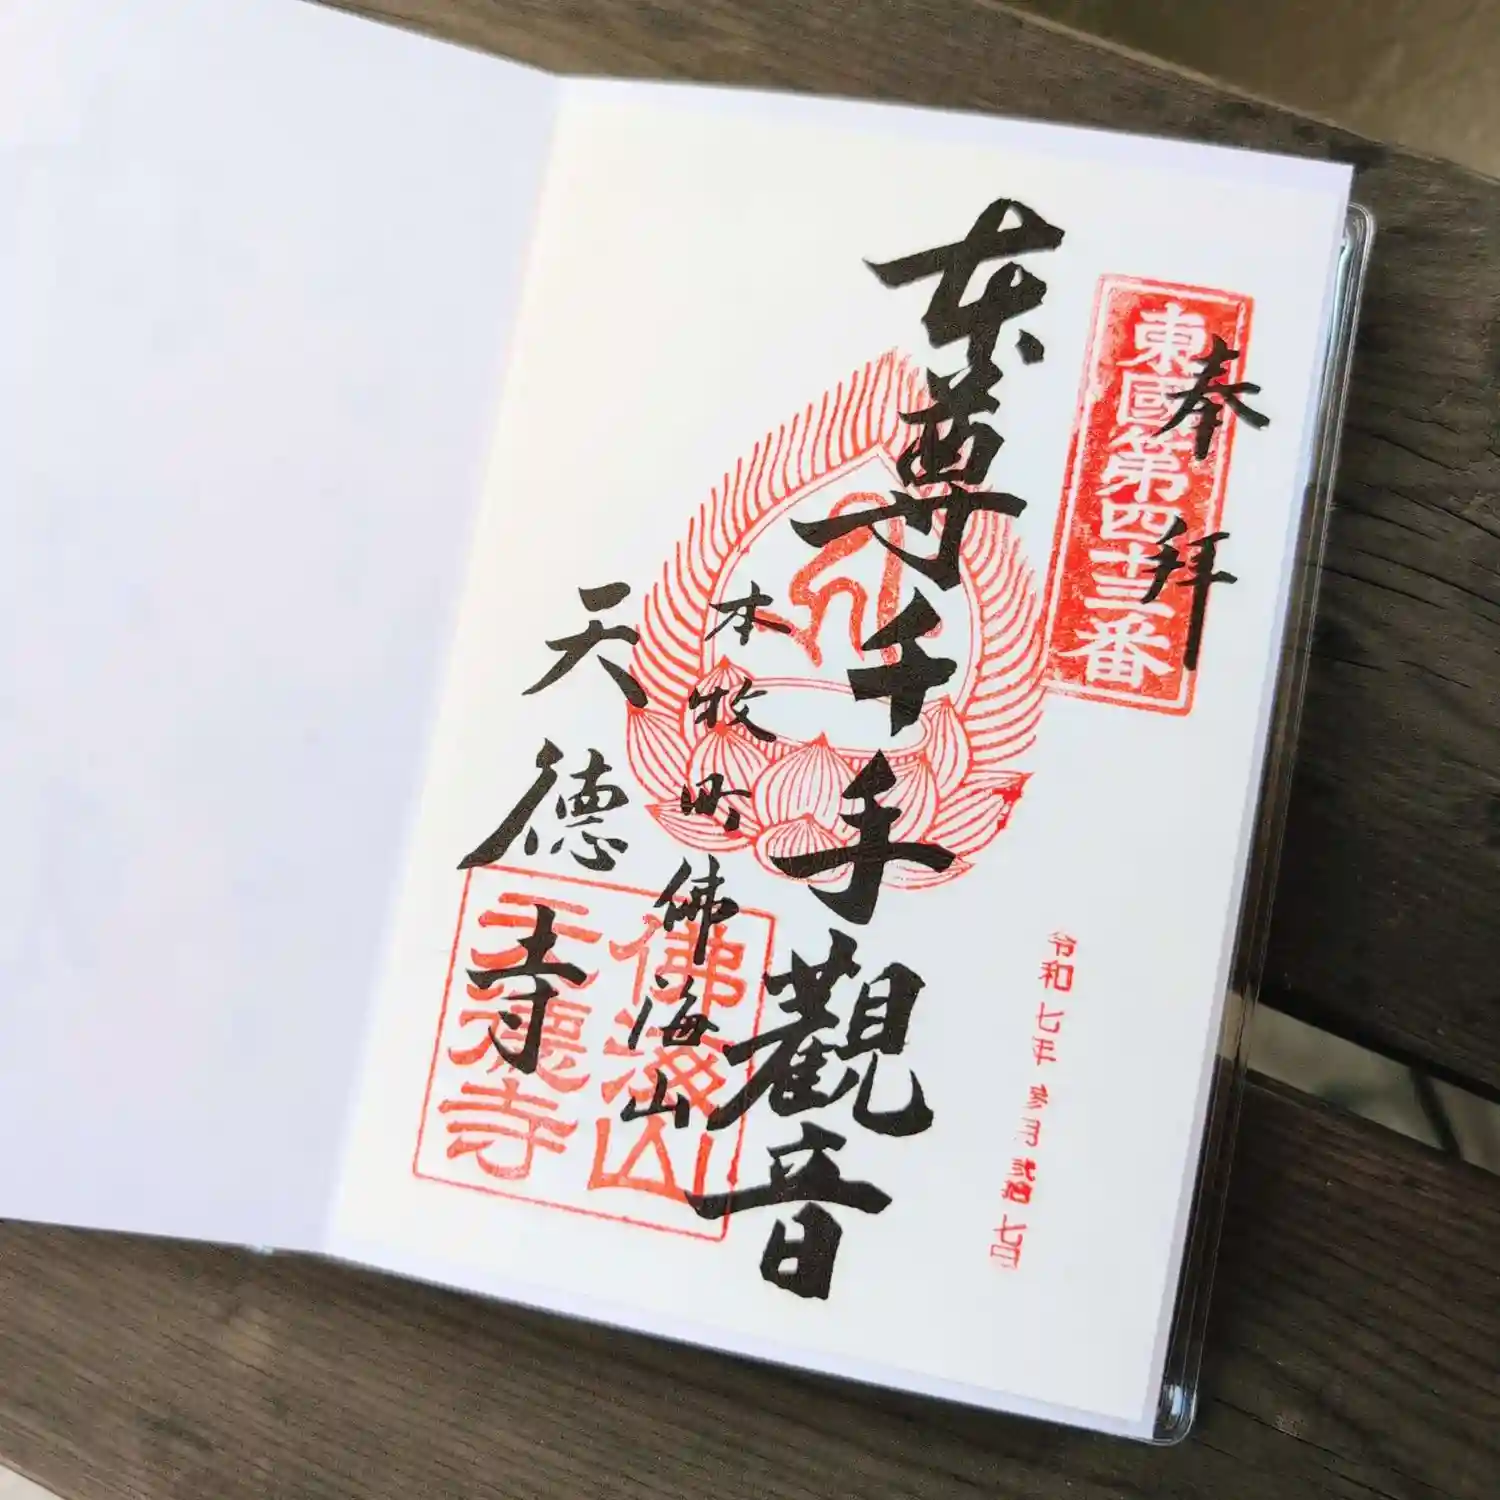 奉拜
東國第四十三番
令和七年参月弐拾七日
本尊千手觀音
本牧町
佛海山
天德寺
佛海山
天德寺